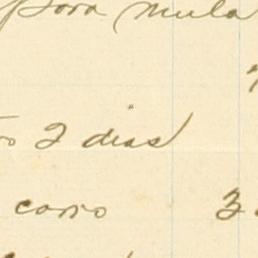 para mula
2 dias
carro 3